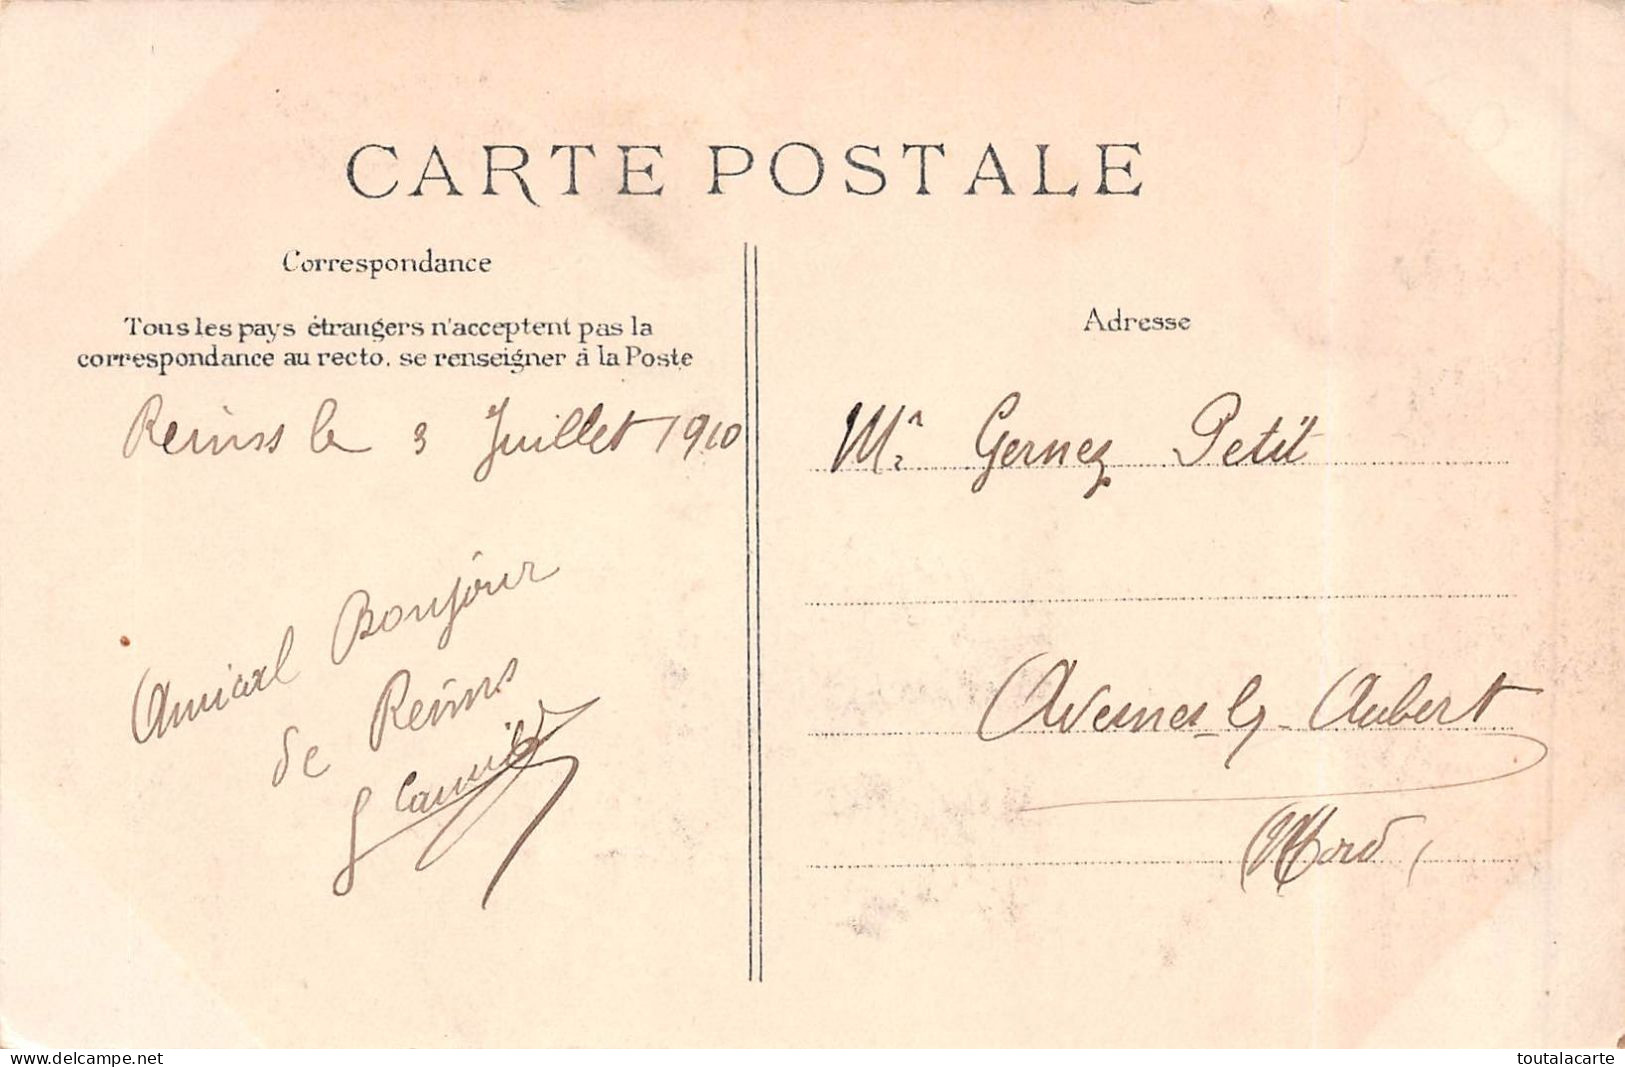 CARTE POSTALE
Correspondance
Tous les pays étrangers n'acceptent pas la
correspondance au recto. se renseigner à la Poste
Reims le 3 Juillet 1910
Amical Bonjour
de Reims
Adresse
Mr. Gernez Petit
Avesnes-les-Aubert
(Nord)
delcampe.net
toutalacarte